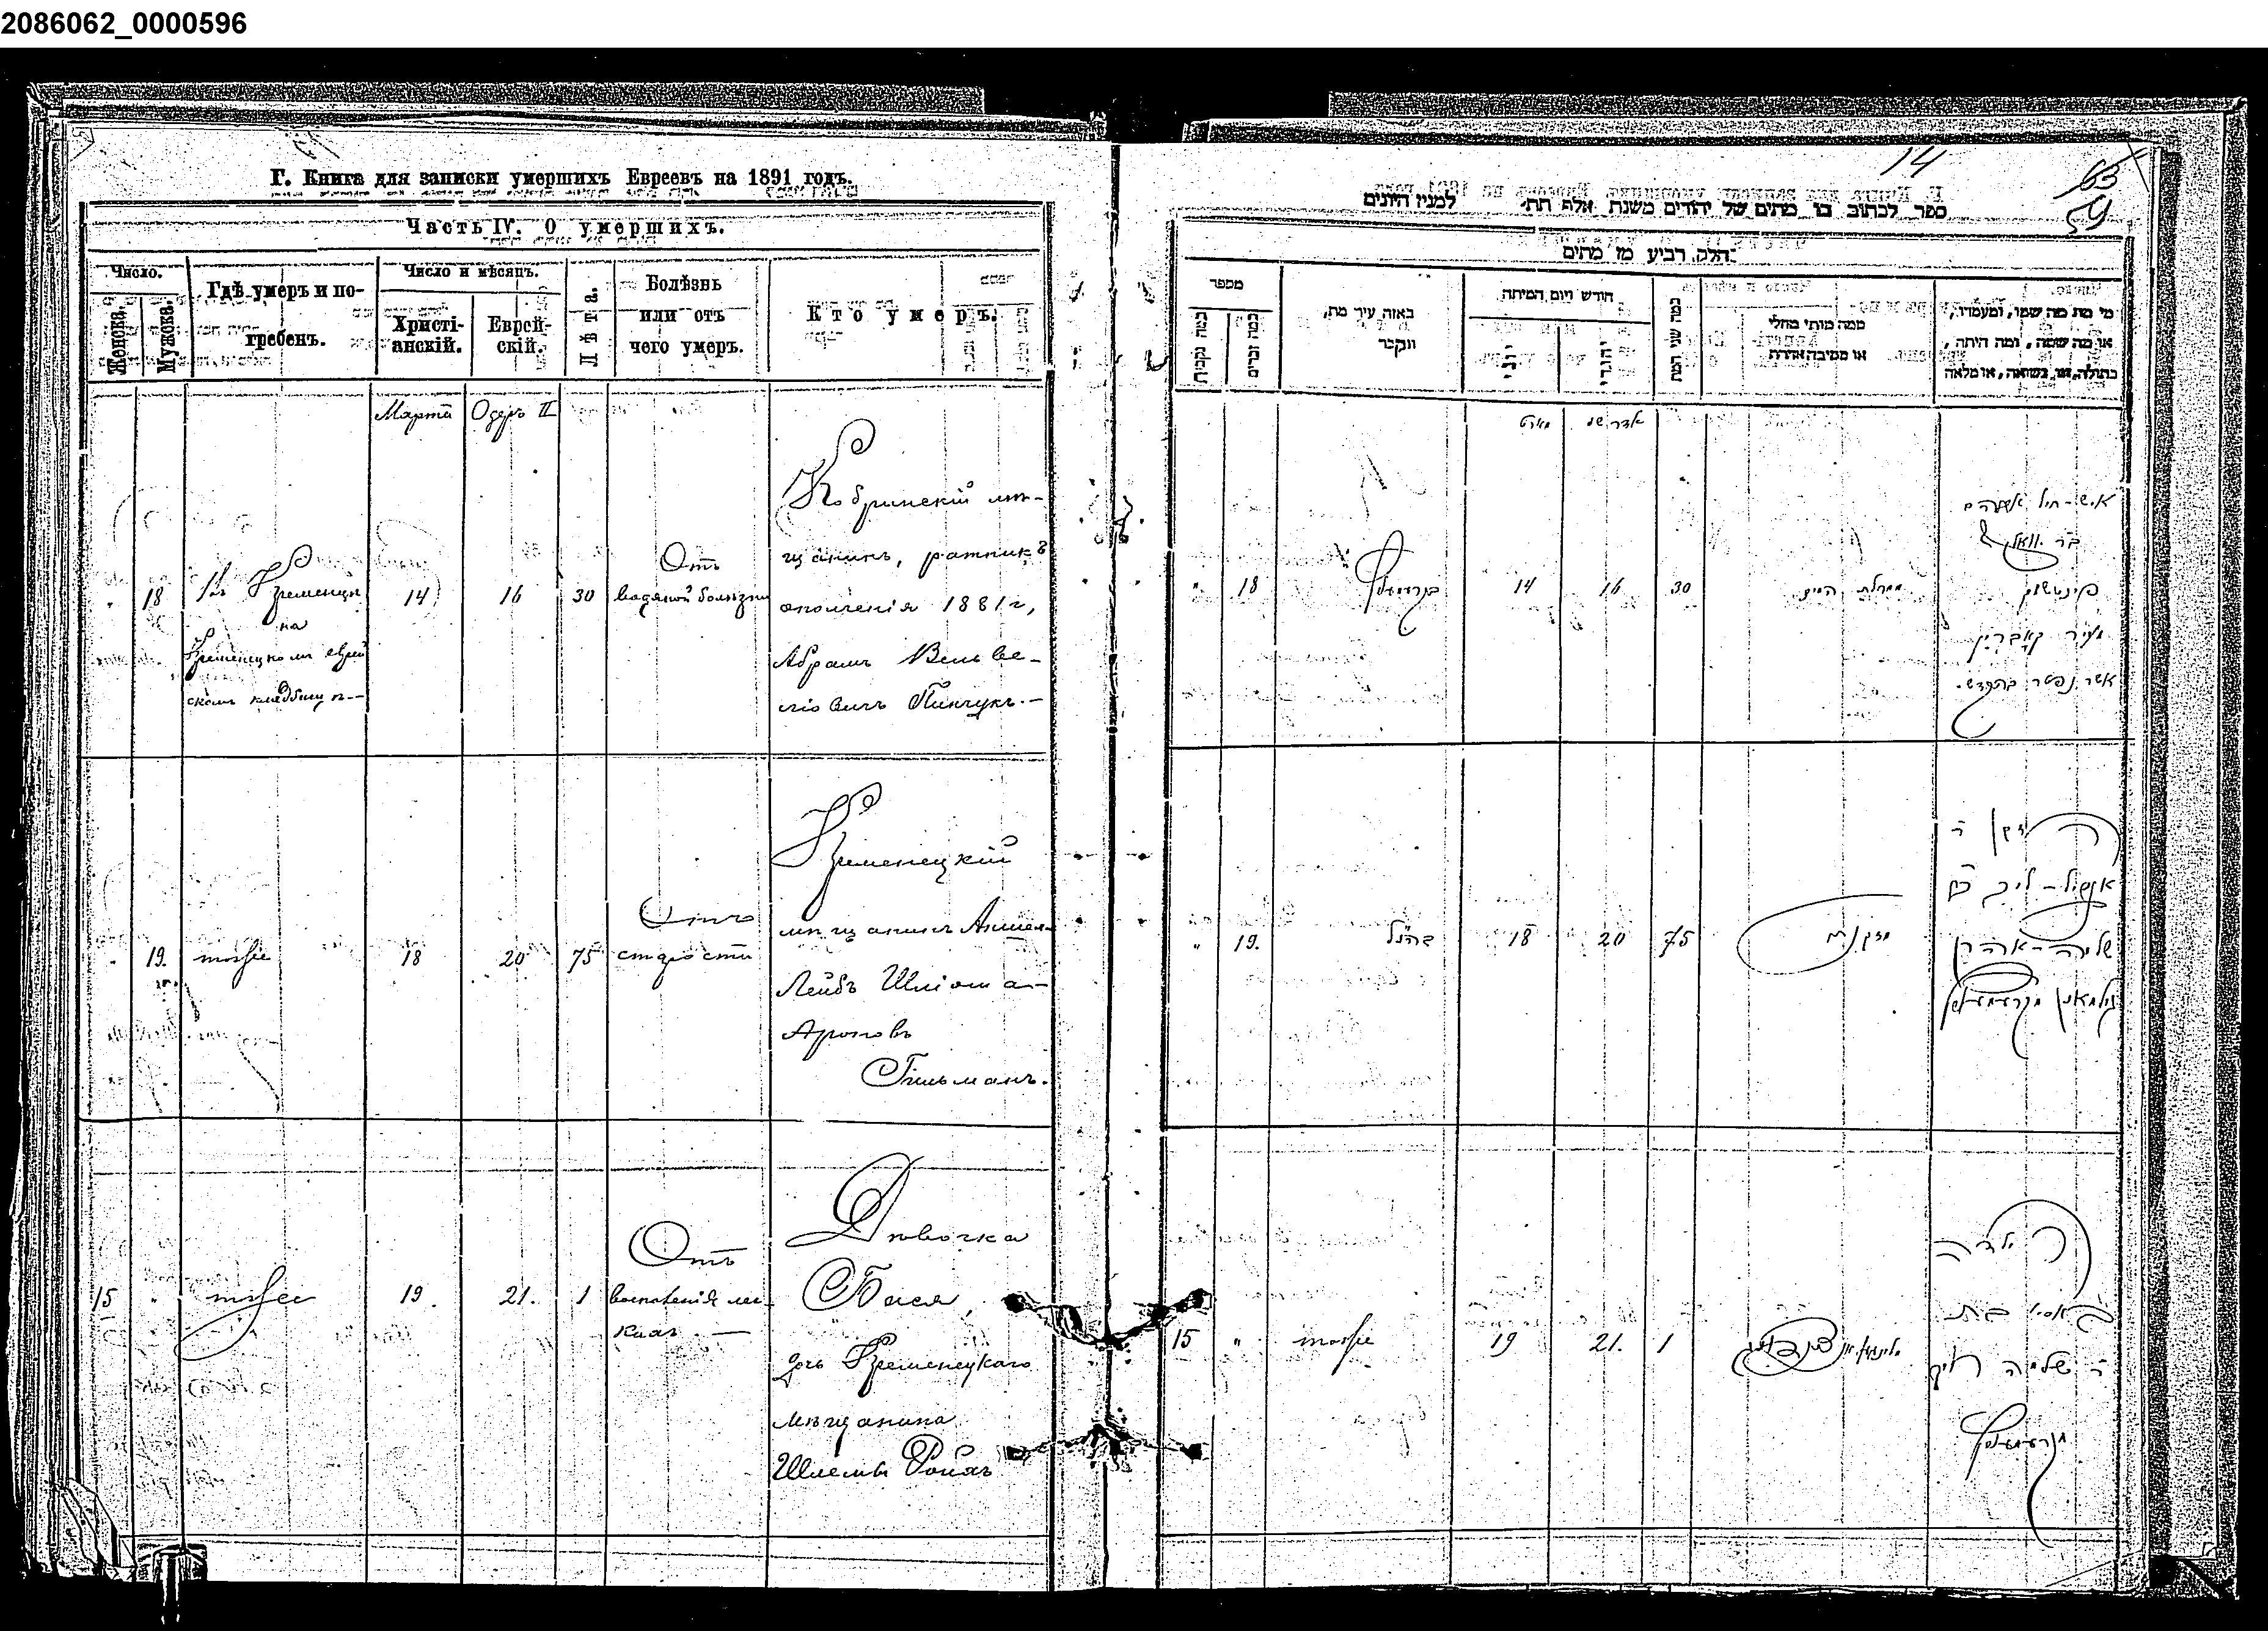 2086062_0000596
Г. Книга для записки умершихъ Евреевъ на 1891 годъ.
Часть IV. О умершихъ.
Число.
Женска.
Мужска.
Гдѣ умеръ и по-
гребенъ.
Число и мѣсяцъ.
Христі-
анскій.
Еврей-
скій.
Лѣта.
Болѣзнь
или отъ
чего умеръ.
Кто умеръ.
Марта
Одеръ II
18
Въ Кременцѣ
на
Кременецкомъ еврей
скомъ кладбищѣ
14
16
30
Отъ
водяной болѣзни
Кобринскій мѣ-
щанинъ, ратникъ
ополченія 1881 г,
Абрамъ Вельве-
Пинчукъ.
19.
тоже
18
20
75
Отъ
старости
Кременецкій
мѣщанинъ Аншел-
Лейбъ Шліома-
Ароновъ
Гильманъ.
15
"
тоже
19.
21.
1
Отъ
воспаленія лег-
кихъ
Дѣвочка
Бася,
дочь Кременецкаго
мѣщанина
Шлемы Ройхъ
14
63
59
ספר לכתוב בו מתים של יהודים משנת אלף תת׳ למנין היונים
חלק רביע מן מתים
מספר
כמה נקבות
כמה זכרים
באזה עיר מת,
ונקבר
חודש ויום המיתה
יוני
יהודי
כמה שני המת
ממה מותי מחלי
או מסיבה אחרת
מי מת מה שמו, ומעמדו,
או מה שמה, ומה היתה,
בתולה, או נשואה, או מלאה
מארט
אדר שני
"
18
14
16
30
איש-חיל אברהם
פינטשוק
מעיר קאברין
אשר נפטר בהקדש.
"
19.
בהנ״ל
18
20
75
מזקנה
הזקן ר׳
אנשיל-ליב בן
שלמה-אהרן
גילמאן מקרעמעניץ
15
"
тоже
19
21.
1
הילדה
באסיא בת
ר׳ שלמה רויך
מקרעמעניץ